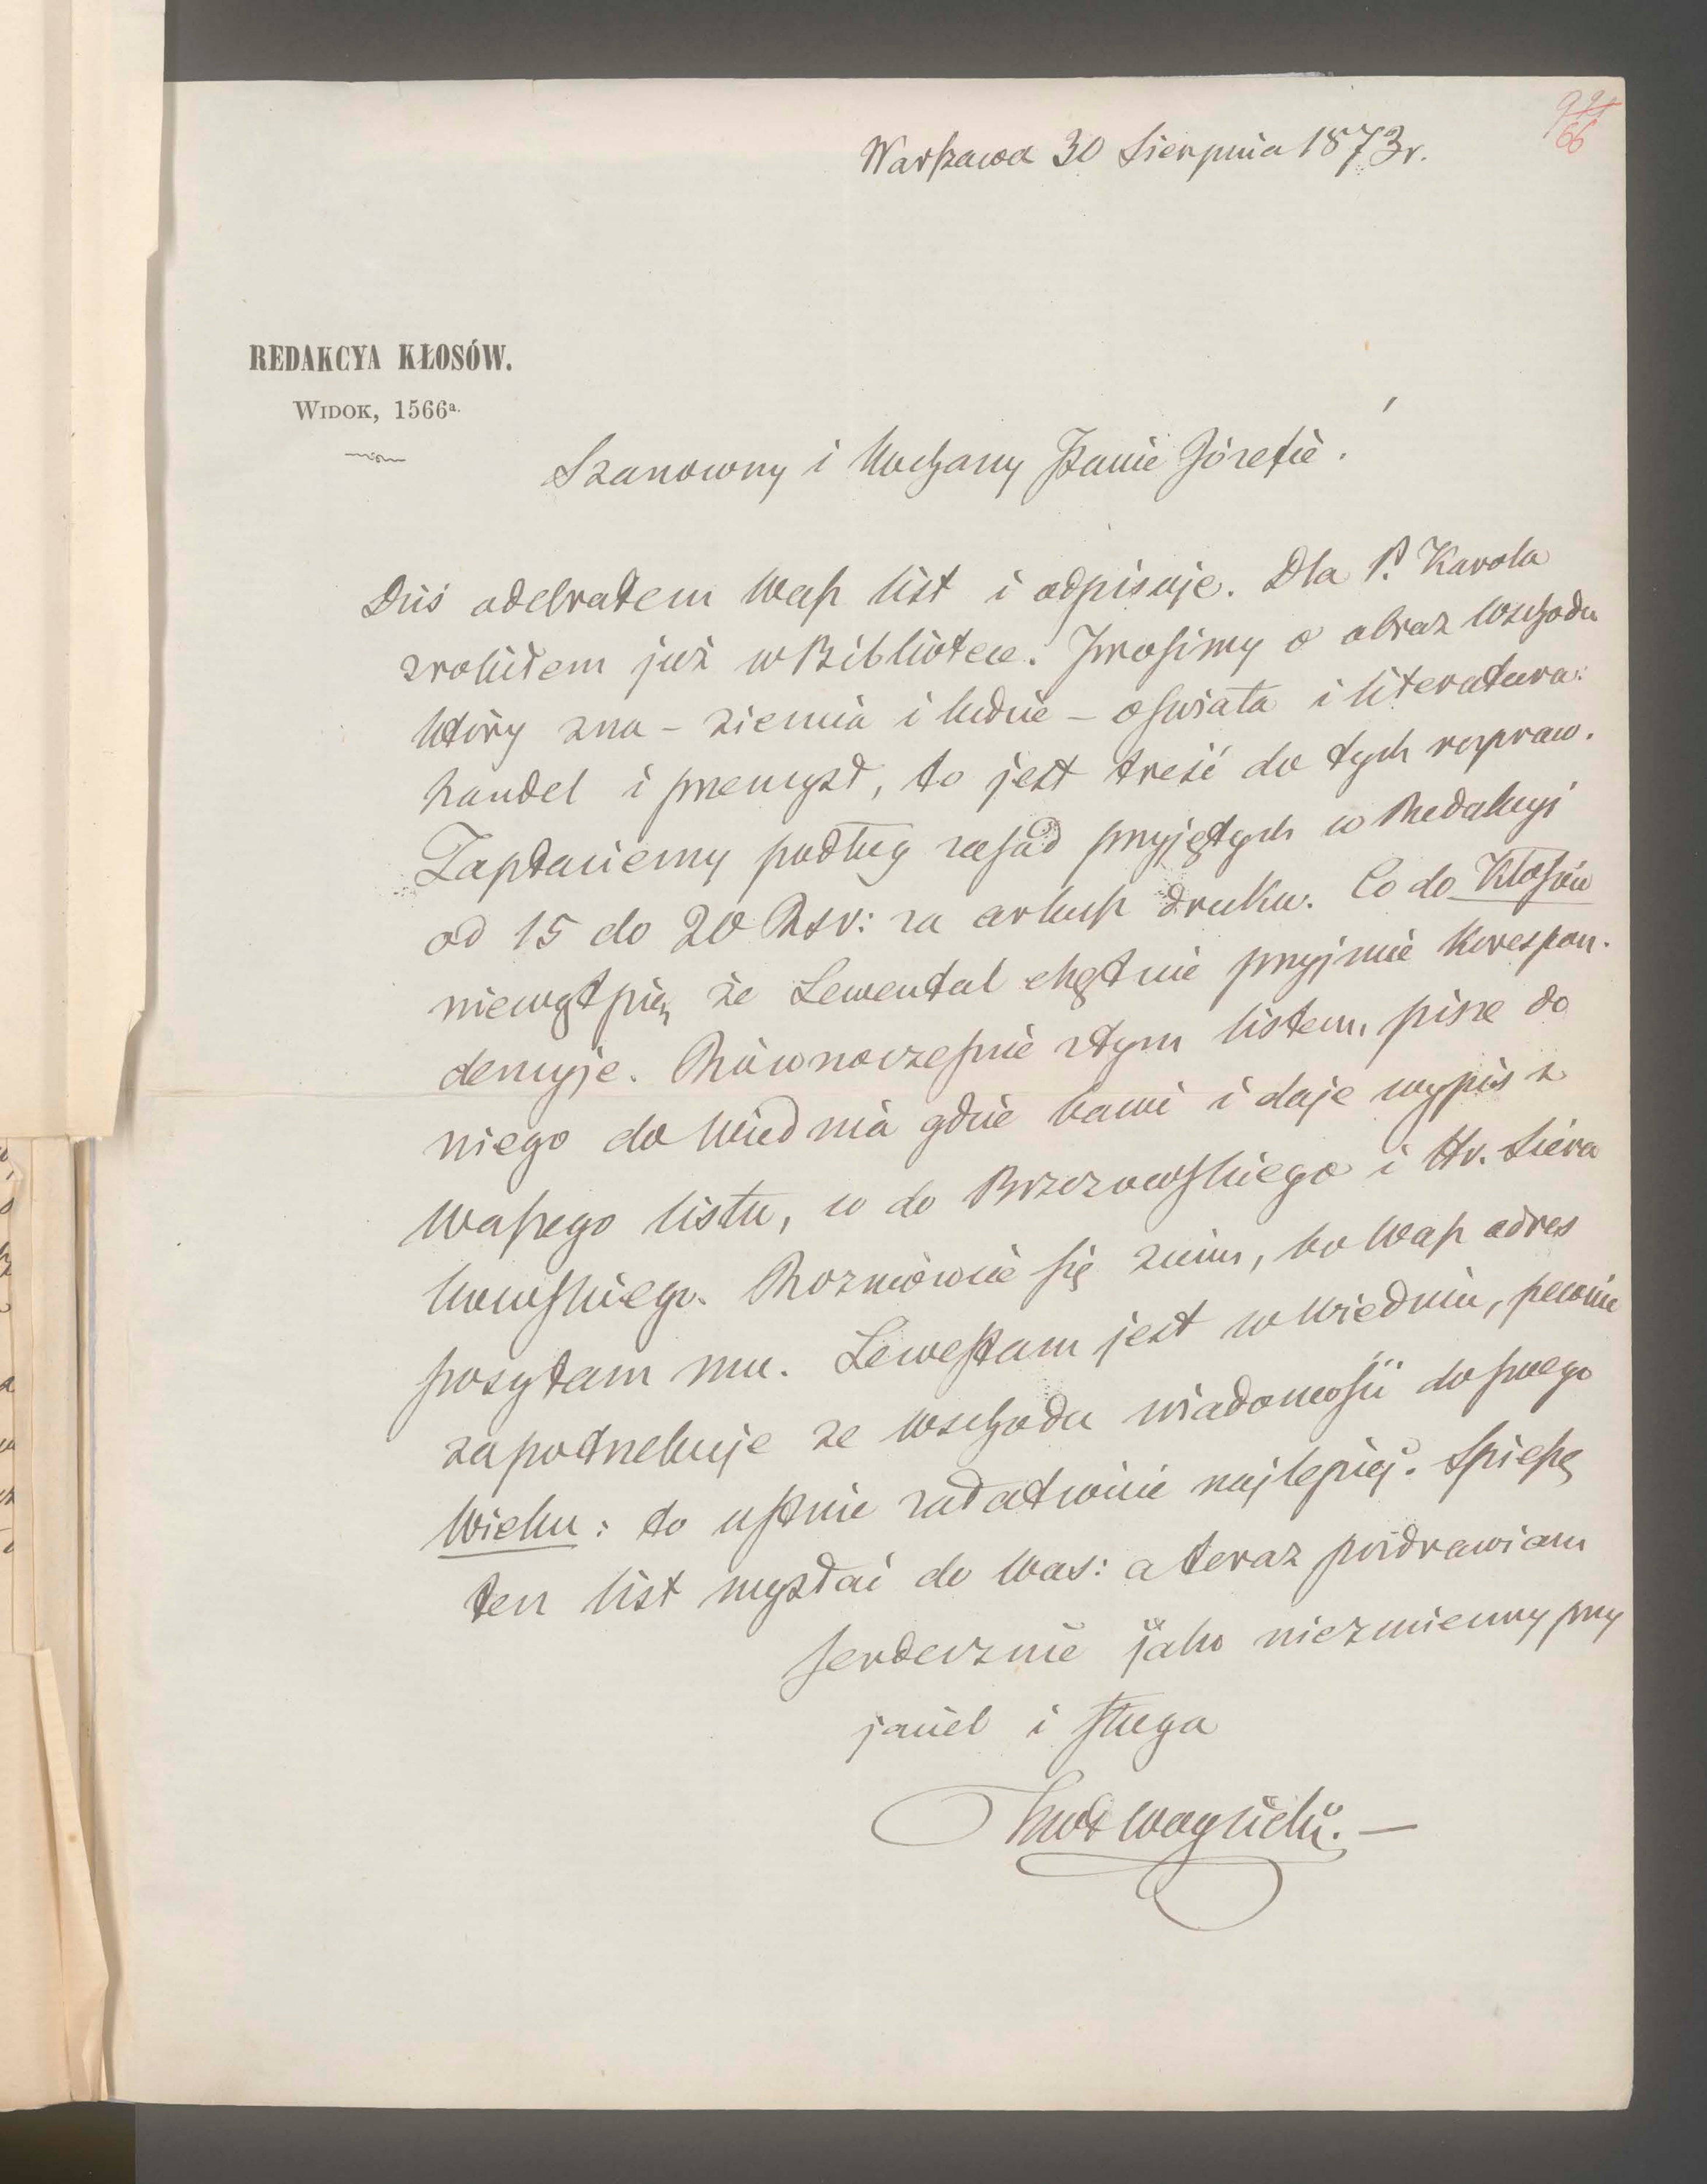 991
66
Warszawa 30 Sierpnia 1873 r.
REDAKCYA KŁOSÓW.
WIDOK, 1566a.
Szanowny i Kochany Panie Józefie!
Dziś odebrałem Wasz list i odpisuje. Dla P. Karola
zrobiłem już w Bibliotece. Prosimy o obraz Wschodu
który zna – ziemia i ludzie – oświata i literatura:
handel i przemysł, to jest treść do tych rozpraw.
Zapłaciemy podług zasad przyjętych w Redakcyi
od 15 do 20 Rsr: za arkusz druku. Co do Kłosów
niewątpię, że Lewental chętnie przyjmie Korespon-
dencyje. Równocześnie z tym listem, pisze do
niego do Wiednia gdzie bawi i daje wypis z
Waszego listu, co do Brzozowskiego i Hr. Siera
kowskiego. Rozmówcie się z nim, bo Wasz adres
posyłam mu. Lewestam jest w Wiedniu, pewnie
zapotrzebuje ze Wschodu wiadomości do swego
Wieku: to ustnie załatwicie najlepiej. Spieszę
ten list wysłać do Was: a teraz pozdrawiam
serdecznie jako niezmienny przy
jaciel i sługa
KWł Wojcicki. —